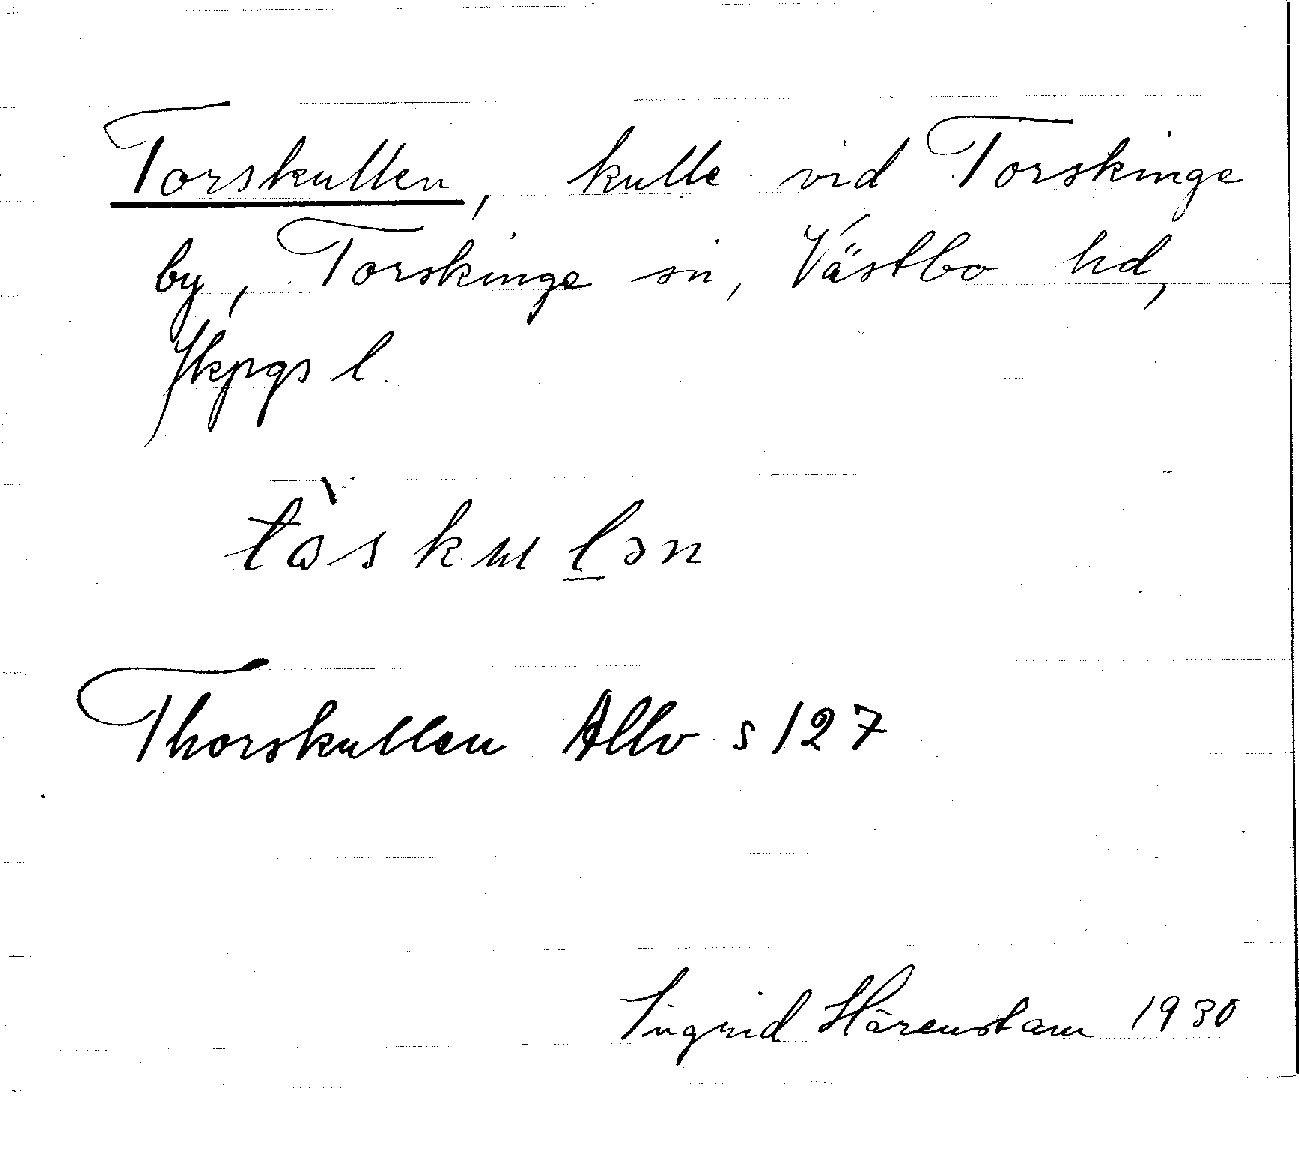 Torskullen, kulle vid Torskinge
by, Torskinge sn, Västbo hd,
Jkpgs l.
tòskulən
Thorskullen Allv s 127
Ingrid Härenstam 1930